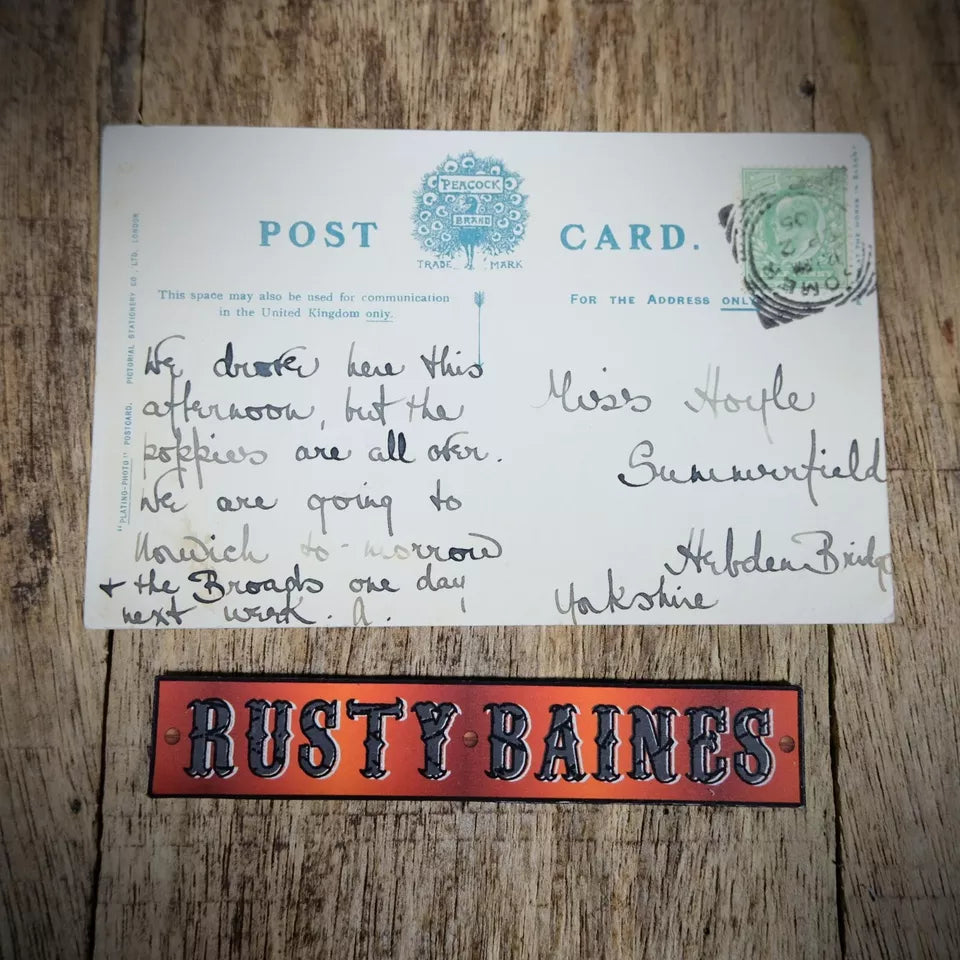 POST CARD.
PEACOCK
BRAND
TRADE MARK
This space may also be used for communication
in the United Kingdom only.
FOR THE ADDRESS ONLY
"PLATING-PHOTO" POSTCARD. PICTORIAL STATIONERY CO., LTD. LONDON
We drove here this
afternoon, but the
poppies are all over.
We are going to
Norwich to-morrow
+ the Broads one day
next week. A.
Miss Hoyle
Summerfield
Hebden Bridge
Yorkshire
OMER
RUSTY BAINES